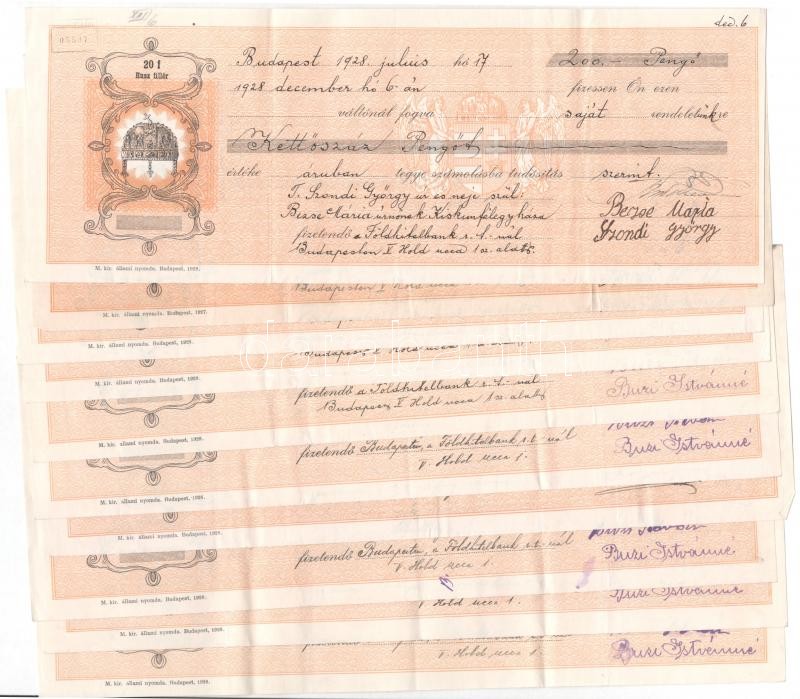 ded. 6
05507
20 f
Husz fillér
Budapest 1928. julius hó 17 200.- Pengő
1928 december hó 6-án fizessen Ön ezen
váltónál fogva saját rendeletünkre
Kettőszáz Pengőt
értéke áruban tegye számolásba tudósítás szerint.
T. Szondi György ur és neje szül:
Bizse Mária urnőnek Kiskunfélegyháza
fizetendő a Földhitelbank r.-t.-nál
Budapesten V Hold ucca 1 sz. alatt.
Bezse Mária
Szondi György
M. kir. állami nyomda. Budapest, 1928.
Budapesten V Hold ucca 1 sz. alatt
M. kir. állami nyomda. Budapest, 1927.
M. kir. állami nyomda. Budapest, 1928.
Budapest V Hold ucca
M. kir. állami nyomda. Budapest, 1928.
fizetendő a Földhitelbank r.-t.-nál
Budapest V Hold ucca 1 sz. alatt
Buzi Istvánné
M. kir. állami nyomda. Budapest, 1928.
fizetendő Budapesten, a Földhitelbank r.t.-nál
V. Hold ucca 1.
Buzi Istvánné
M. kir. állami nyomda. Budapest, 1928.
M. kir. állami nyomda. Budapest, 1928.
fizetendő Budapesten, a Földhitelbank r.t.-nál
V. Hold ucca 1.
Buzi Istvánné
M. kir. állami nyomda. Budapest, 1928.
V. Hold ucca 1.
Buzi Istvánné
M. kir. állami nyomda. Budapest, 1928.
V. Hold ucca 1.
Buzi Istvánné
M. kir. állami nyomda. Budapest, 1928.